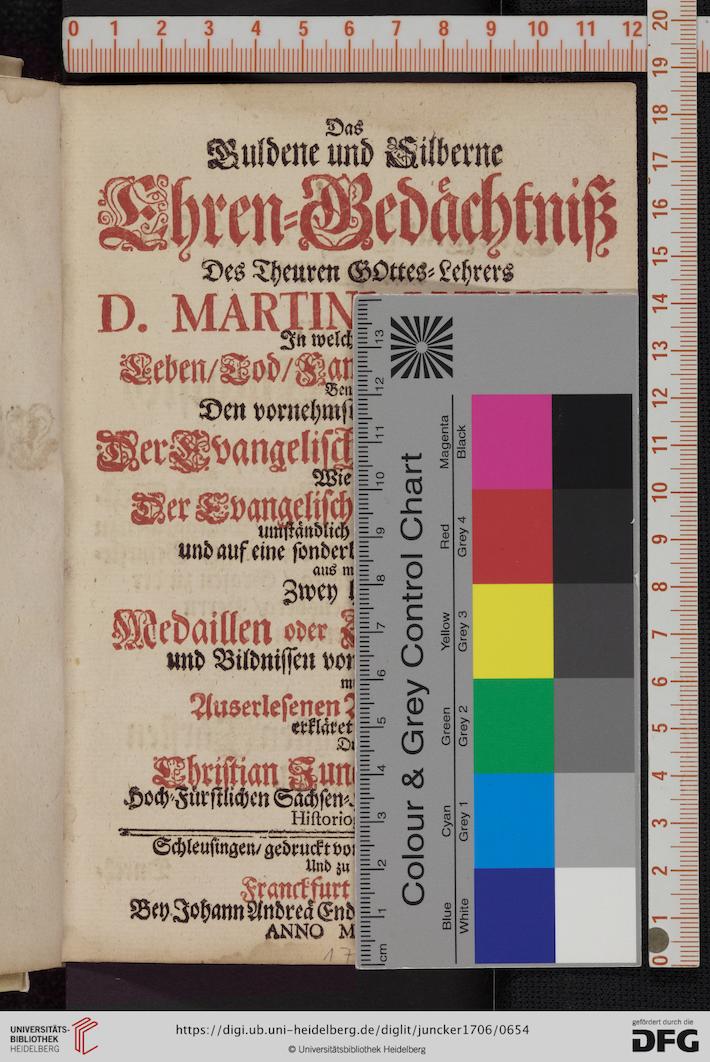 0 1 2 3 4 5 6 7 8 9 10 11 12
20
19
18
17
16
15
14
13
12
11
10
9
8
7
6
5
4
3
2
1
0
Das
Guldene und Silberne
Ehren-Gedächtniß
Des Theuren GOttes-Lehrers
D. MARTIN
In welch
Leben/Tod/Fam
Ben
Den vornehmst
Der Evangelisch
Wie
Der Evangelisch
umständlich
und auf eine sonderl
aus m
Zwey
Medaillen oder
und Bildnissen von
m
Auserlesenen
erkläret
Du
Christian Junc
Hoch-Fürstlichen Sächsen-
Historio
Schleusingen/ gedruckt von
Und zu
Franckfurt
Bey Johann Andreä End
ANNO M
17
Colour & Grey Control Chart
Blue Cyan Green Yellow Red Magenta
White Grey 1 Grey 2 Grey 3 Grey 4 Black
cm 1 2 3 4 5 6 7 8 9 10 11 12 13
UNIVERSITÄTS-
BIBLIOTHEK
HEIDELBERG
https://digi.ub.uni-heidelberg.de/diglit/juncker1706/0654
© Universitätsbibliothek Heidelberg
gefördert durch die
DFG